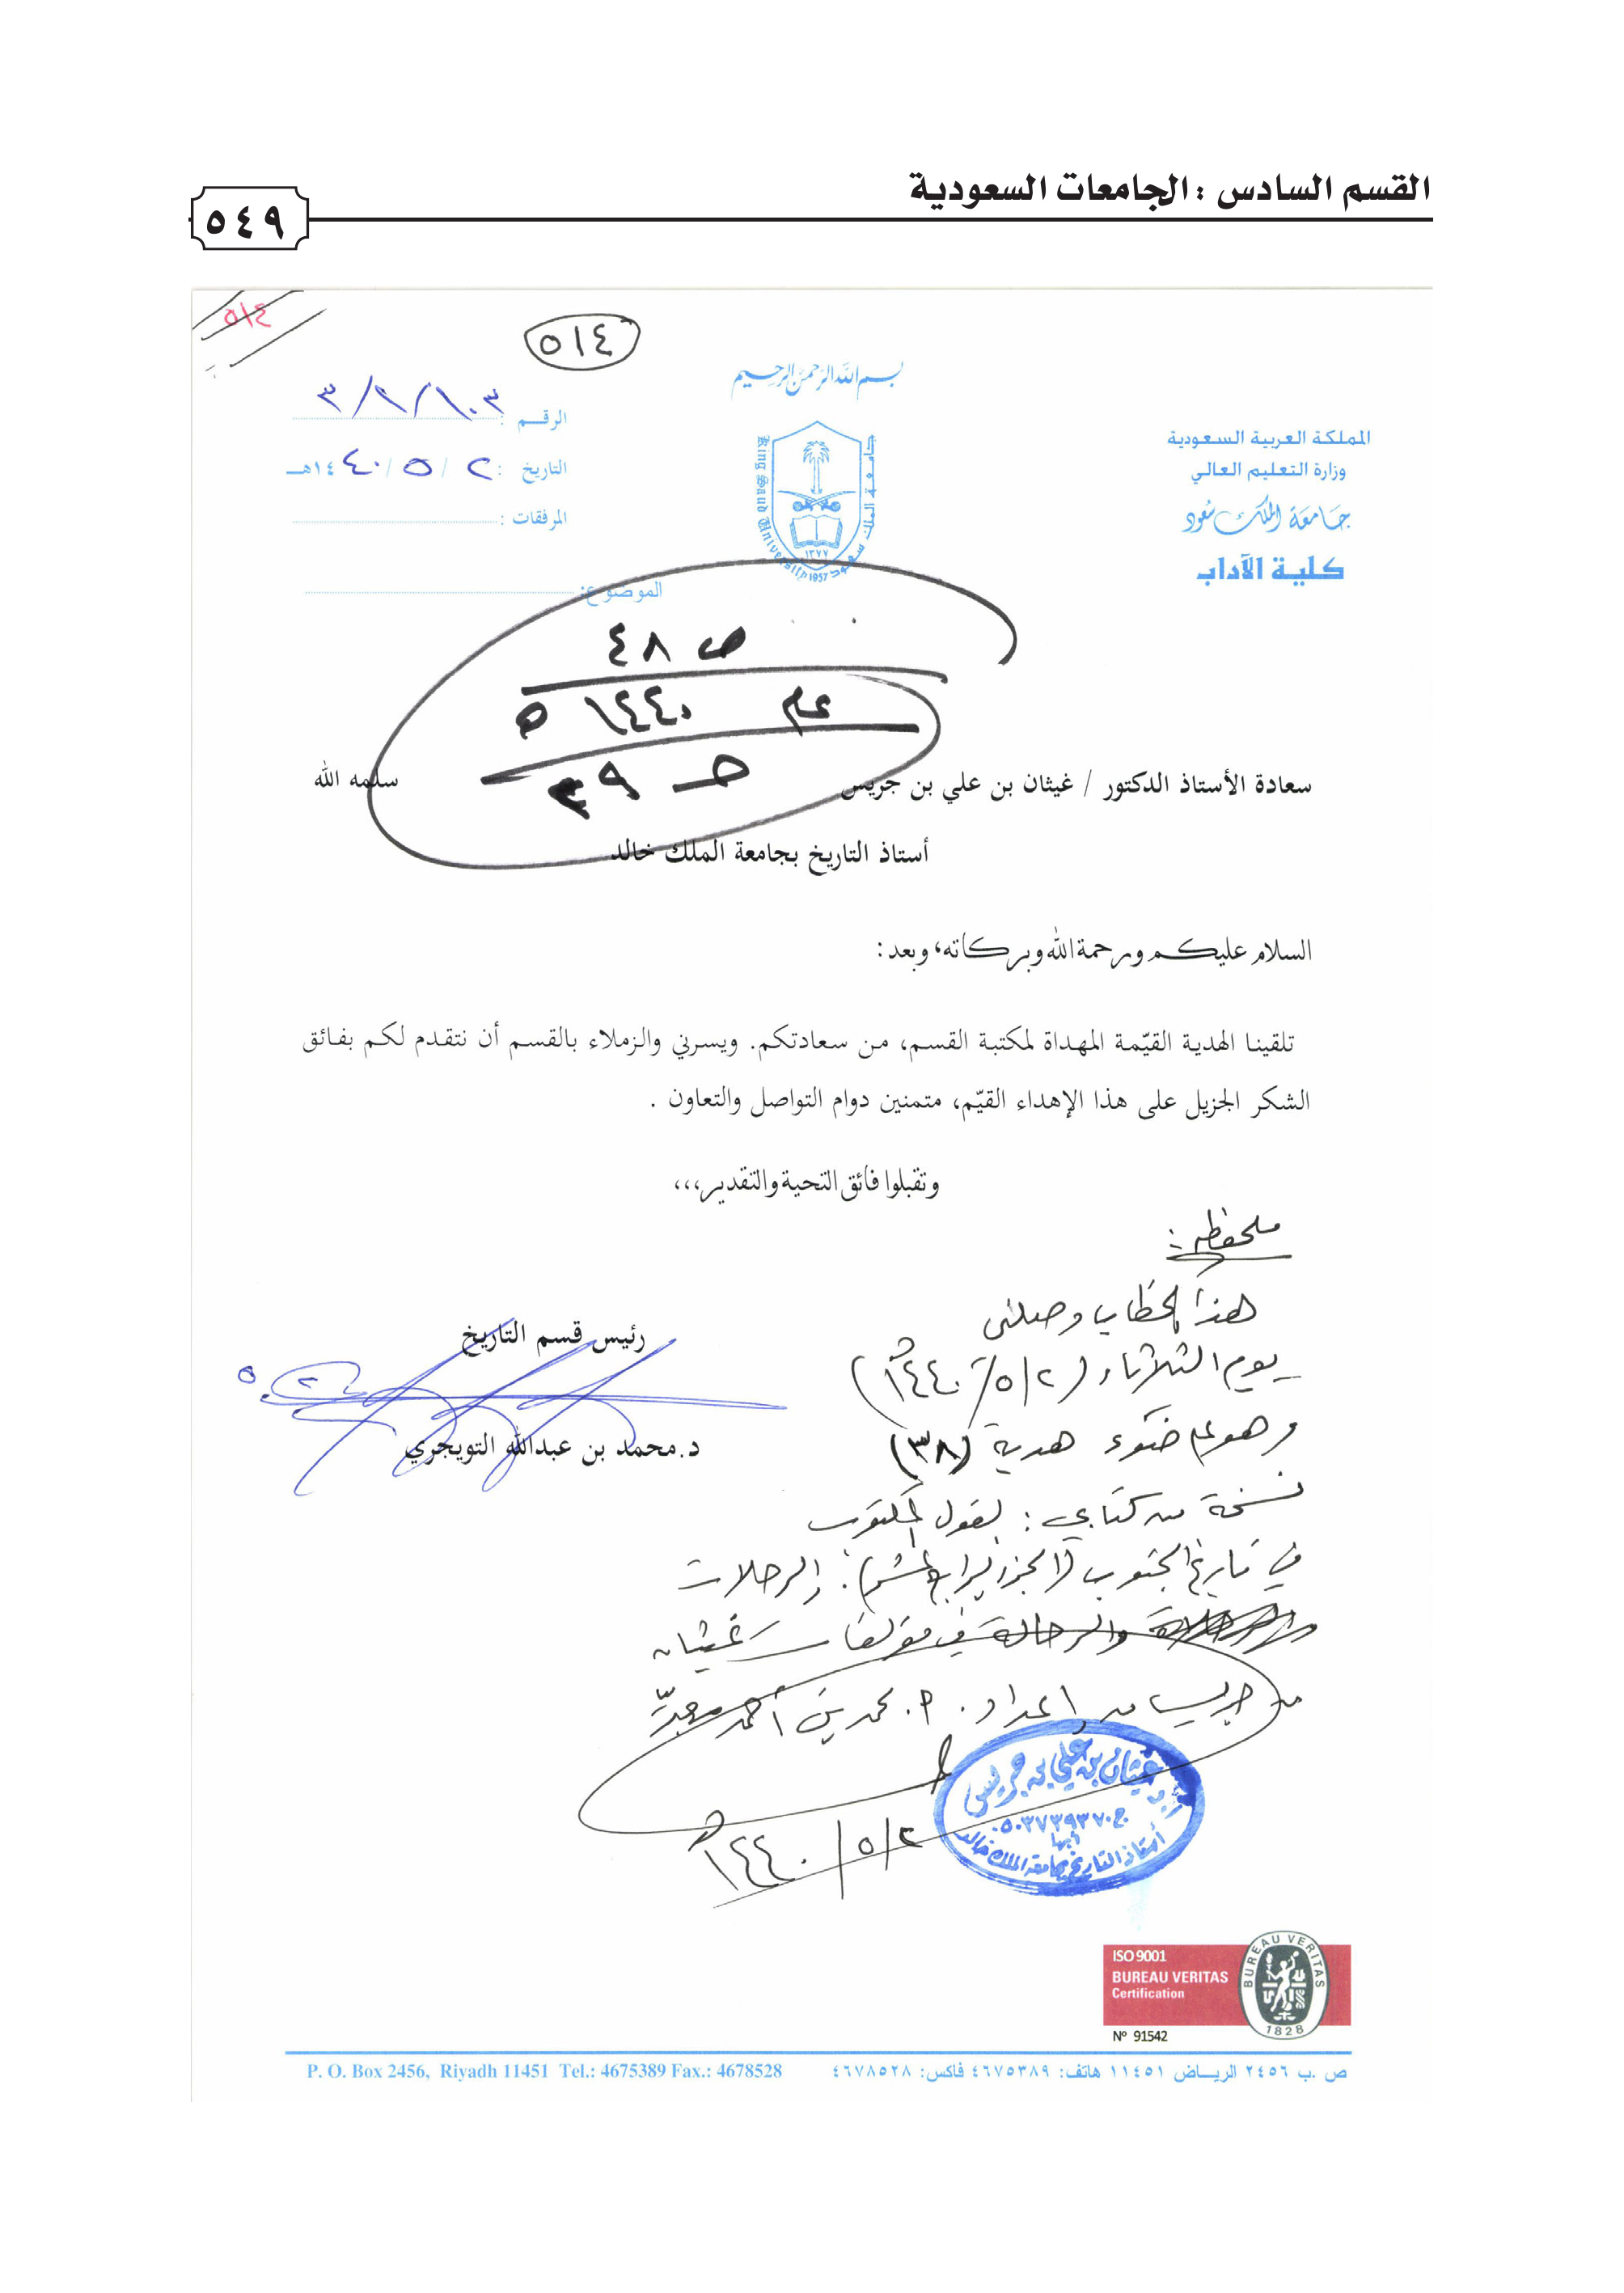 القسم السادس : الجامعات السعودية
٥٤٩
٥١٤
٥١٤
بسم الله الرحمن الرحيم
المملكة العربية السعودية
وزارة التعليم العالي
جامعة الملك سعود
كلية الآداب
جامعة الملك سعود
King Saud University
١٣٧٧
1957
الرقم :
التاريخ : ٢ / ٥ / ١٤٤٠هـ
المرفقات :
الموضوع :
ص ٤٨
١٤٤٠
سعادة الأستاذ الدكتور / غيثان بن علي بن جريس سلمه الله
أستاذ التاريخ بجامعة الملك خالد
السلام عليكم ورحمة الله وبركاته، وبعد:
تلقينا الهدية القيّمة المهداة لمكتبة القسم، من سعادتكم. ويسرني والزملاء بالقسم أن نتقدم لكم بفائق
الشكر الجزيل على هذا الإهداء القيّم، متمنين دوام التواصل والتعاون .
وتقبلوا فائق التحية والتقدير،،،
رئيس قسم التاريخ
د.محمد بن عبدالله التويجري
ملحوظه :
هذا الخطاب وصلني
يوم الثلاثاء (٢/٥/١٤٤٠هـ)
وهو على ضوء هدية (٣٨)
نسخة من كتابي : القول المكتوب
في تاريخ الجنوب (الجزء الرابع عشر) : الرحلات
والرحالة في مؤلفات غيثان
بن جريس من إعداد . أ. محمد بن أحمد معبر
٢/٥/١٤٤٠هـ
أ.د. غيثان بن علي بن جريس
أبها
أستاذ التاريخ بجامعة الملك خالد
ISO 9001
BUREAU VERITAS
Certification
Nº 91542
BUREAU VERITAS
1828
P. O. Box 2456, Riyadh 11451 Tel.: 4675389 Fax.: 4678528
ص .ب ٢٤٥٦ الرياض ١١٤٥١ هاتف: ٤٦٧٥٣٨٩ فاكس: ٤٦٧٨٥٢٨